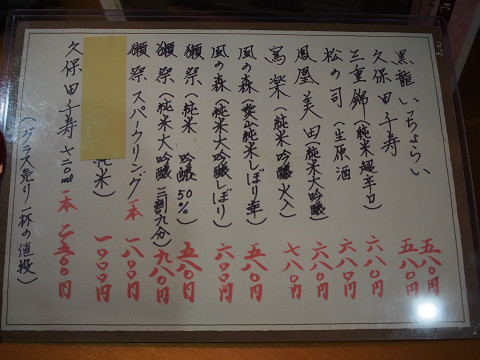 黒龍 いっちょらい 五八〇円
久保田 千寿 五八〇円
三重錦(純米 超辛口) 六八〇円
松の司(生原酒) 六八〇円
鳳凰美田(純米大吟醸) 七八〇円
寫楽(純米吟醸 火入)
風の森(愛山純米しぼり華) 五八〇円
風の森(純米大吟醸しぼり) 六〇〇円
獺祭(純米 吟醸 50%) 五八〇円
獺祭(純米大吟醸 三割九分) 九八〇円
獺祭 スパークリング 一本 一八〇〇円
純米) 一〇〇〇円
久保田千寿 七二〇ml 一本 二五〇〇円
(グラス売り一杯の値段)